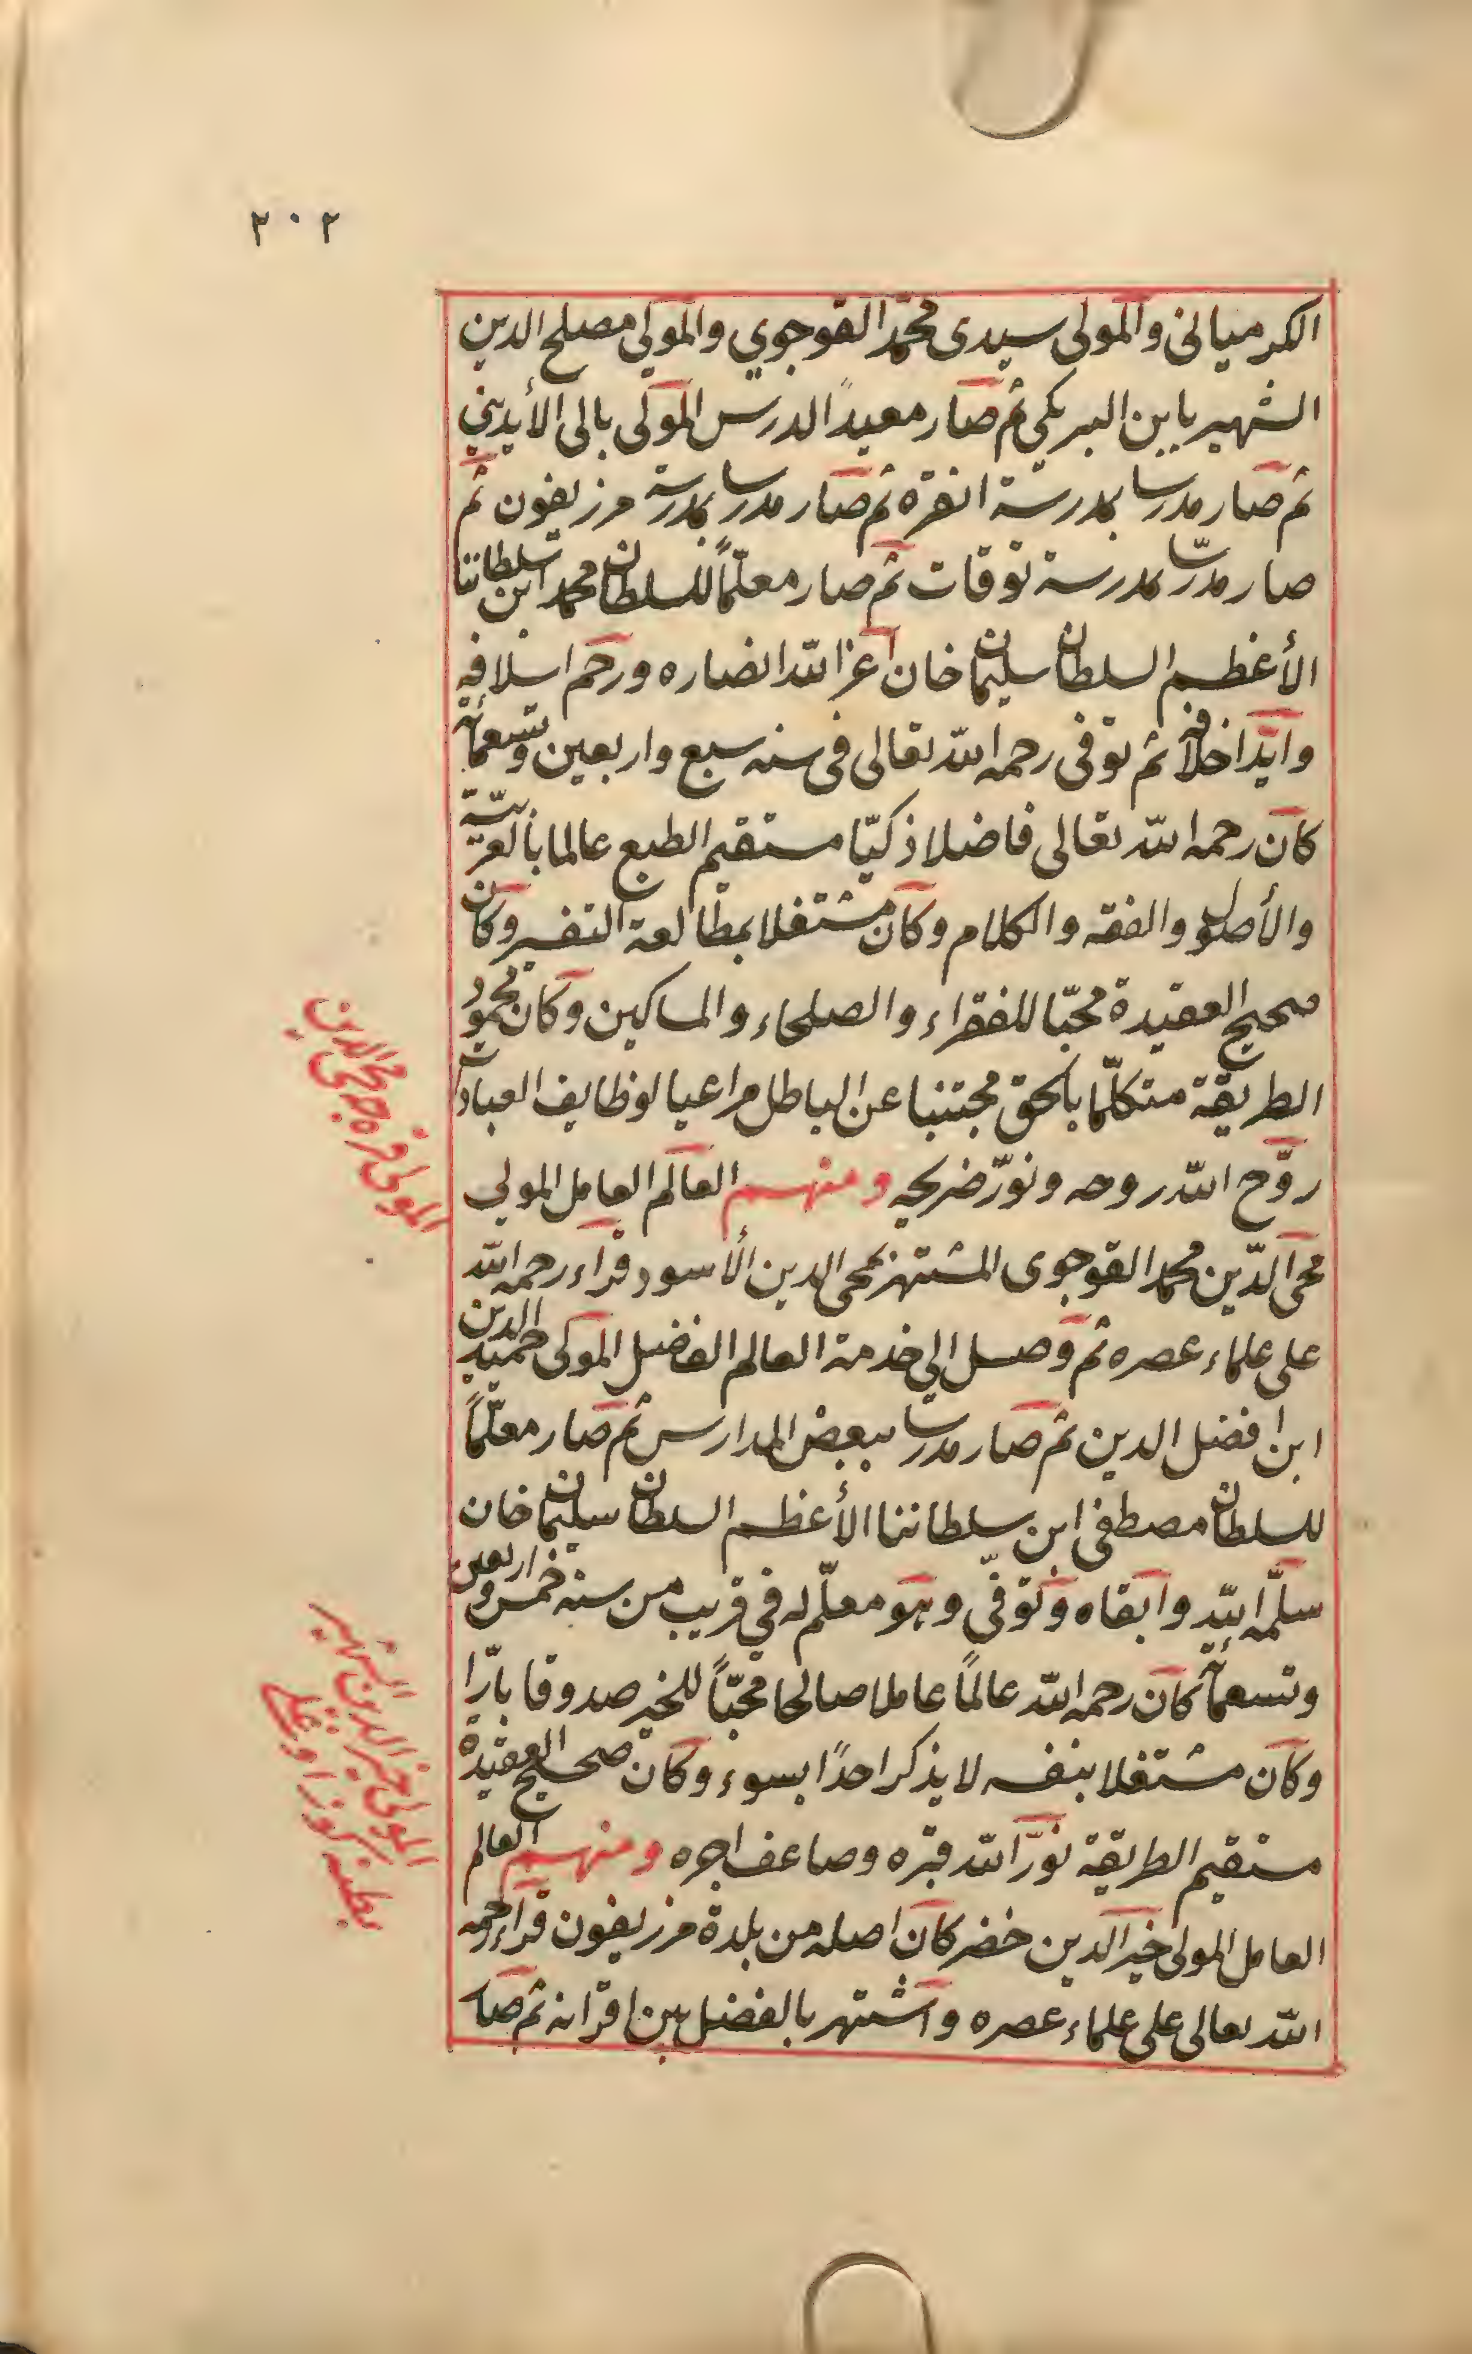 ٢٠٢
الكرميانى والمولى سيدى محمد القوجوي والمولى مصلح الدين
الشهير بابن البركى ثم صار معيداً لدرس المولى بالى الأيدينى
ثم صار مدرسا بمدرسة انقره ثم صار مدرسا بمدرسة مرزيفون ثم
صار مدرسّا بمدرسة توقات ثم صار معلّماً للسلطان محمد ابن سلطاننا
الأعظم السلطان سليمان خان اعز الله انصاره ورحم اسلافه
وايّد اخلافه ثم توفى رحمه الله تعالى فى سنه سبع واربعين وتسعمائة
كان رحمه الله تعالى فاضلا ذكيّا مستقيم الطبع عالما بالعربيّة
والأصول والفقه والكلام وكان مشتغلا بمطالعة التفسير وكان
صحيح العقيدة محبّا للفقراء والصلحاء والمساكين وكان محمود
الطريقة متكلّما بالحق مجتنبا عن الباطل مراعيا لوظايف العبادات
روّح الله روحه ونوّر ضريحه ومنهم العالم العامل المولى
محى الدّين محمد القوجوى المشتهر بمحى الدين الأسود قراء رحمه الله
على علماء عصره ثم وصل الى خدمة العالم الفاضل المولى حميد الدين
ابن افضل الدين ثم صار مدرسّا ببعض المدارس ثم صار معلّماً
للسلطان مصطفى ابن سلطاننا الأعظم السلطان سليمان خان
سلّمه الله وابقاه وتوفّى وهو معلّم له في قريب من سنه خمس واربعين
وتسعمائة كان رحمه الله عالماً عاملا صالحا محبّاً للخير صدوقا بارّا
وكان مشتغلا بنفسه لا يذكر احدًا بسوء وكان صحيح العقيدة
مستقيم الطريقة نوّر الله قبره وضاعف اجره ومنهم العالم
العامل المولى خير الدين خضر كان اصله من بلدة مرزيفون قراء رحمه
الله تعالى على علماء عصره واشتهر بالفضل بين اقرانه ثم صار
المولى قره محى الدين
المولى خير الدين الشهير